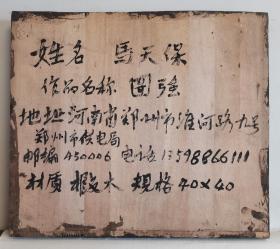 姓名 馬天保
作品名称 图强
地址 河南省郑州市淮河路九号
郑州市供电局
邮编 450006 电话 13598866111
材质 椴木 规格 40X40